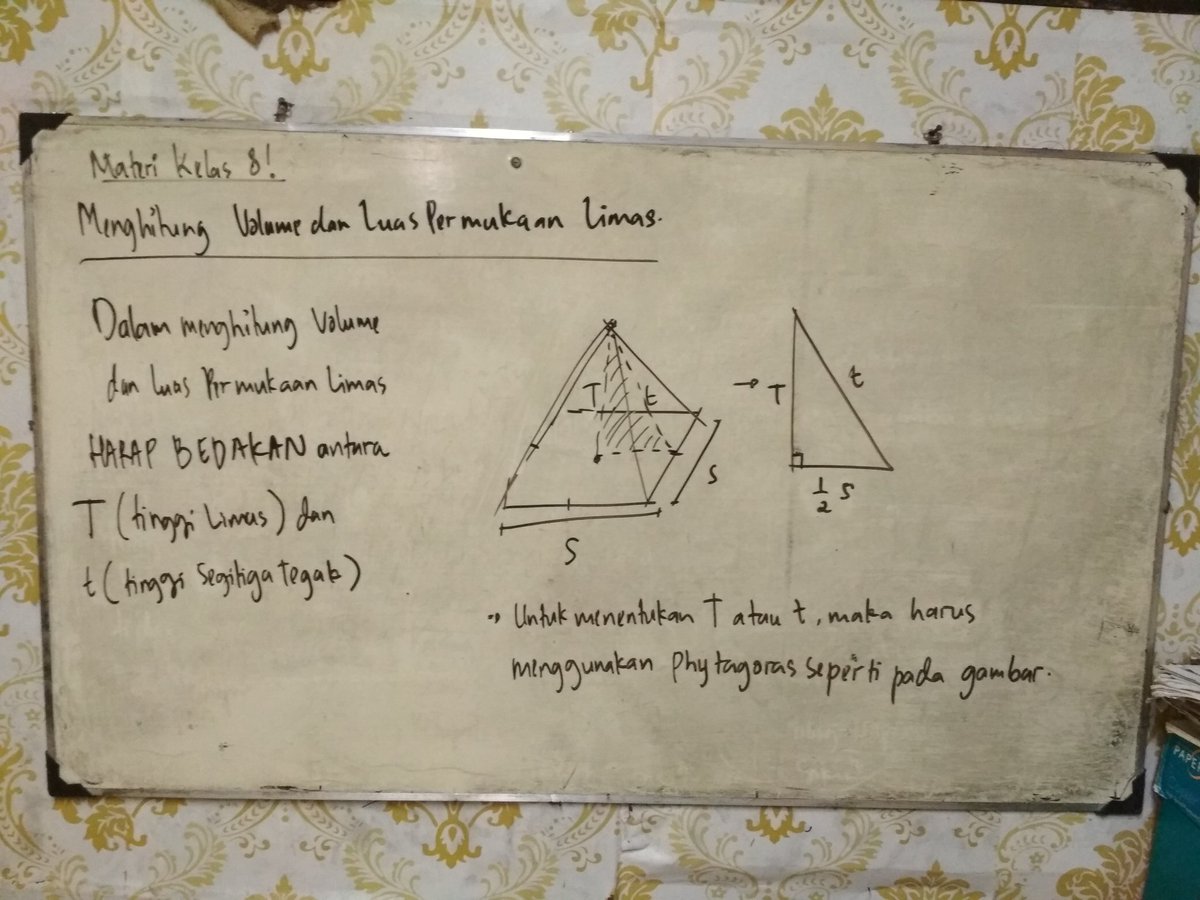 Materi Kelas 8!
Menghitung Volume dan Luas Permukaan Limas.
Dalam menghitung Volume
dan Luas Permukaan Limas
HARAP BEDAKAN antara
T (tinggi Limas) dan
t (tinggi Segitiga Tegak)
T
t
S
S
→
T
t
1/2 S
→ Untuk menentukan T atau t, maka harus
menggunakan Phytagoras seperti pada gambar.
PAPE